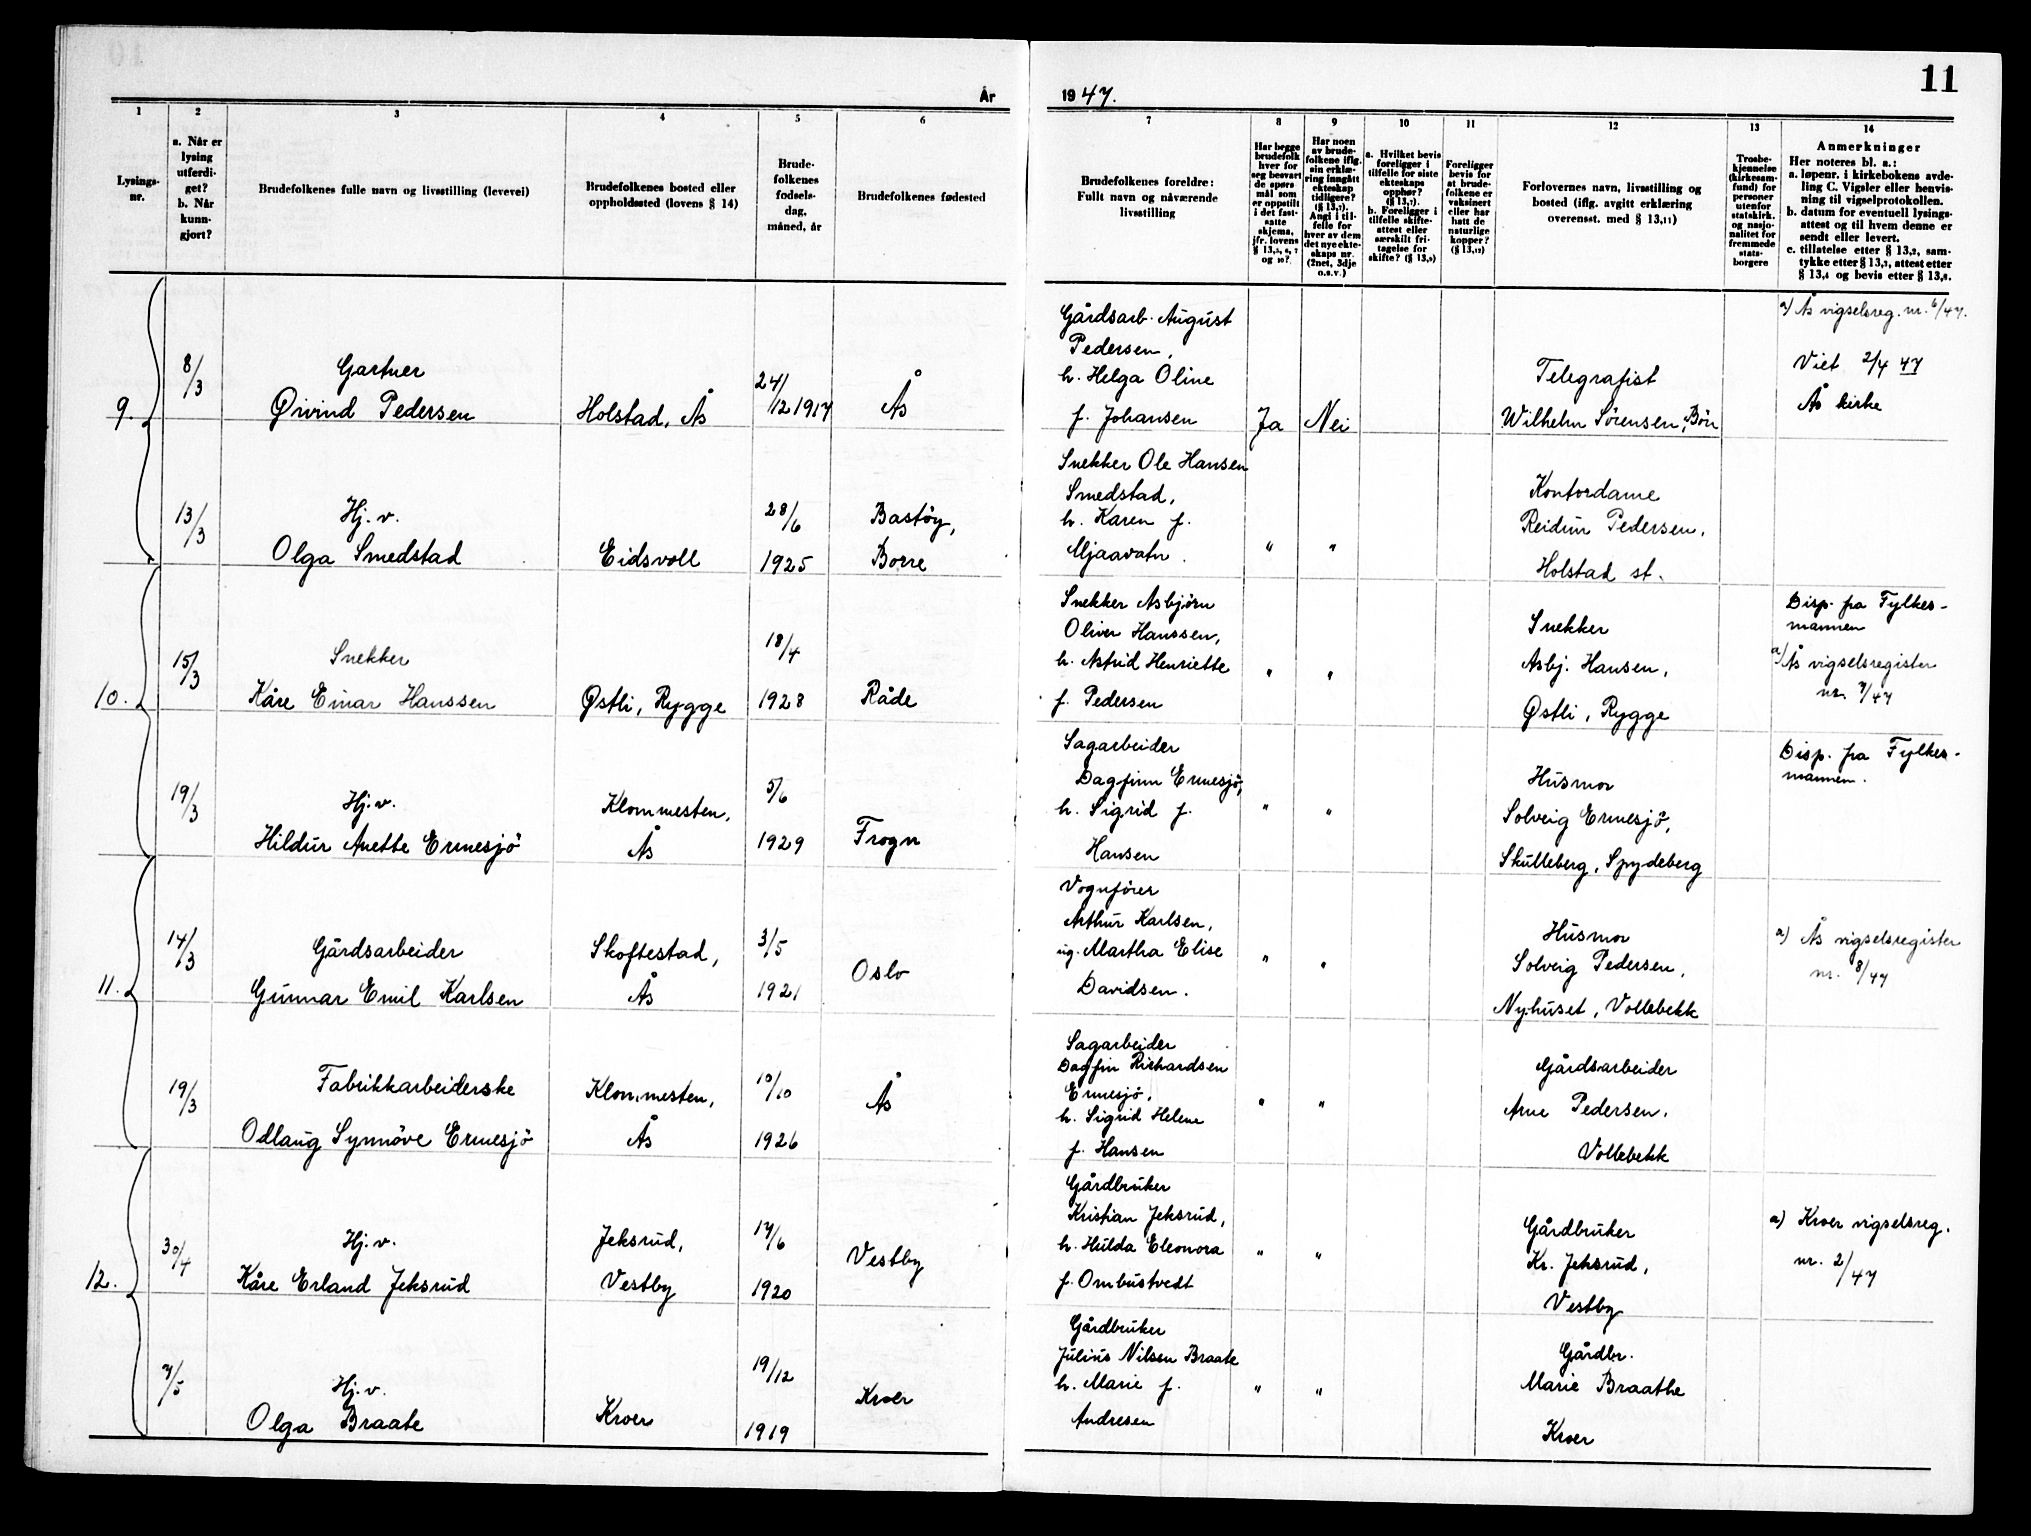 11
År
1947.
1
2
3
4
5
6
7
8
9
10
11
12
13
14
Lysings-
nr.
a. Når er
lysing
utferdi-
get?
b. Når
kunn-
gjort?
Brudefolkenes fulle navn og livsstilling (levevei)
Brudefolkenes bosted eller
oppholdssted (lovens § 14)
Brude-
folkenes
fødsels-
dag,
måned, år
Brudefolkenes fødested
Brudefolkenes foreldre:
Fullt navn og nåværende
livsstilling
Har begge
brudefolk
hver for
seg besvart
de spørs
mål som
er oppstilt
i det fast-
satte
skjema,
jfr. lovens
§ 13,5, 6, 7
og 10?
Har noen
av brude-
folkene iflg.
sin erklæ-
ring inngått
ekteskap
tidligere?
(§ 13,7).
Angi i til-
felle for
hver av dem
det nye ekte-
skaps nr.
(2net, 3dje
o.s.v.)
a. Hvilket bevis
foreligger i
tilfelle for siste
ekteskaps
opphør?
(§ 13,7).
b. Foreligger i
tilfelle skifte-
attest eller
særskilt fri-
tagelse for
skifte? (§ 13,9)
Foreligger
bevis for
at brude-
folkene er
vaksinert
eller har
hatt de
naturlige
kopper?
(§ 13,12)
Forlovernes navn, livsstilling og
bosted (iflg. avgitt erklæring
overensst. med § 13,11)
Trosbe-
kjennelse
(kirkesam-
fund) for
personer
utenfor
statskirk.
og nasjo-
nalitet for
fremmede
stats-
borgere
Anmerkninger
Her noteres bl. a.:
a. løpenr. i kirkebokens avde-
ling C. Vigsler eller henvis-
ning til vigselprotokollen.
b. datum for eventuell lysings-
attest og til hvem denne er
sendt eller levert.
c. tillatelse etter § 13,2, sam-
tykke etter § 13,3, attest etter
§ 13,4 og bevis etter § 13,8.
9.
8/3
Gartner
Øivind Pedersen
Holstad, Ås
24/12 1917
Ås
Gårdsarb. August
Pedersen,
h. Helga Oline
f. Johansen
Ja
Nei
Telegrafist
Wilhelm Sörensen, Bön
a) Ås vigselsreg. nr. 6/47.
Viet 2/4 47
Ås kirke
13/3
Hj. v.
Olga Smedstad
Eidsvoll
28/6
1925
Bastöy,
Borre
Snekker Ole Hansen
Smedstad,
h. Karen f.
Mjaavatn.
"
"
Kontordame
Reidun Pedersen,
Holstad st.
10.
15/3
Snekker
Kåre Einar Hanssen
Østli, Rygge
18/4
1928
Råde
Snekker Asbjörn
Oliver Hanssen,
h. Astrid Henriette
f. Pedersen
"
"
Snekker
Asbj. Hansen,
Østli, Rygge
Disp. fra Fylkes-
mannen
a) Ås vigselsregister
nr. 7/47
19/3
Hj. v.
Hildur Anette Ermesjö
Klommesten,
Ås
5/6
1929
Frogn
Sagarbeider
Dagfinn Ermesjö,
h. Sigrid f.
Hansen
"
"
Husmor
Solveig Ermesjö,
Skulleberg, Spydeberg
Disp. fra Fylkes-
mannen.
11.
14/3
Gårdsarbeider
Gunnar Emil Karlsen
Skoftestad,
Ås
3/5
1921
Oslo
Vognförer
Arthur Karlsen,
ug. Martha Elise
Davidsen.
"
"
Husmor
Solveig Pedersen,
Nyhuset, Vollebekk
a) Ås vigselsregister
nr. 8/47
19/3
Fabrikkarbeiderske
Odlaug Synnöve Ermesjö
Klommesten,
Ås
10/10
1926
Ås
Sagarbeider
Dagfin Richardsen
Ermesjö,
h. Sigrid Helene
f. Hansen
"
"
Gårdsarbeider
Arne Pedersen,
Vollebekk
12.
30/4
Hj. v.
Kåre Erland Jeksrud
Jeksrud,
Vestby
17/6
1920
Vestby
Gårdbruker
Kristian Jeksrud,
h. Hulda Eleonora
f. Ombustvedt
"
"
Gårdbruker
Kr. Jeksrud,
Vestby
a) Kroer vigselsreg.
nr. 2/47
7/5
Hj. v.
Olga Braate
Kroer
19/12
1919
Kroer
Gårdbruker
Julius Nilsen Braate
h. Marie f.
Andresen
"
"
Gårdbr.
Marie Braathe
Kroer